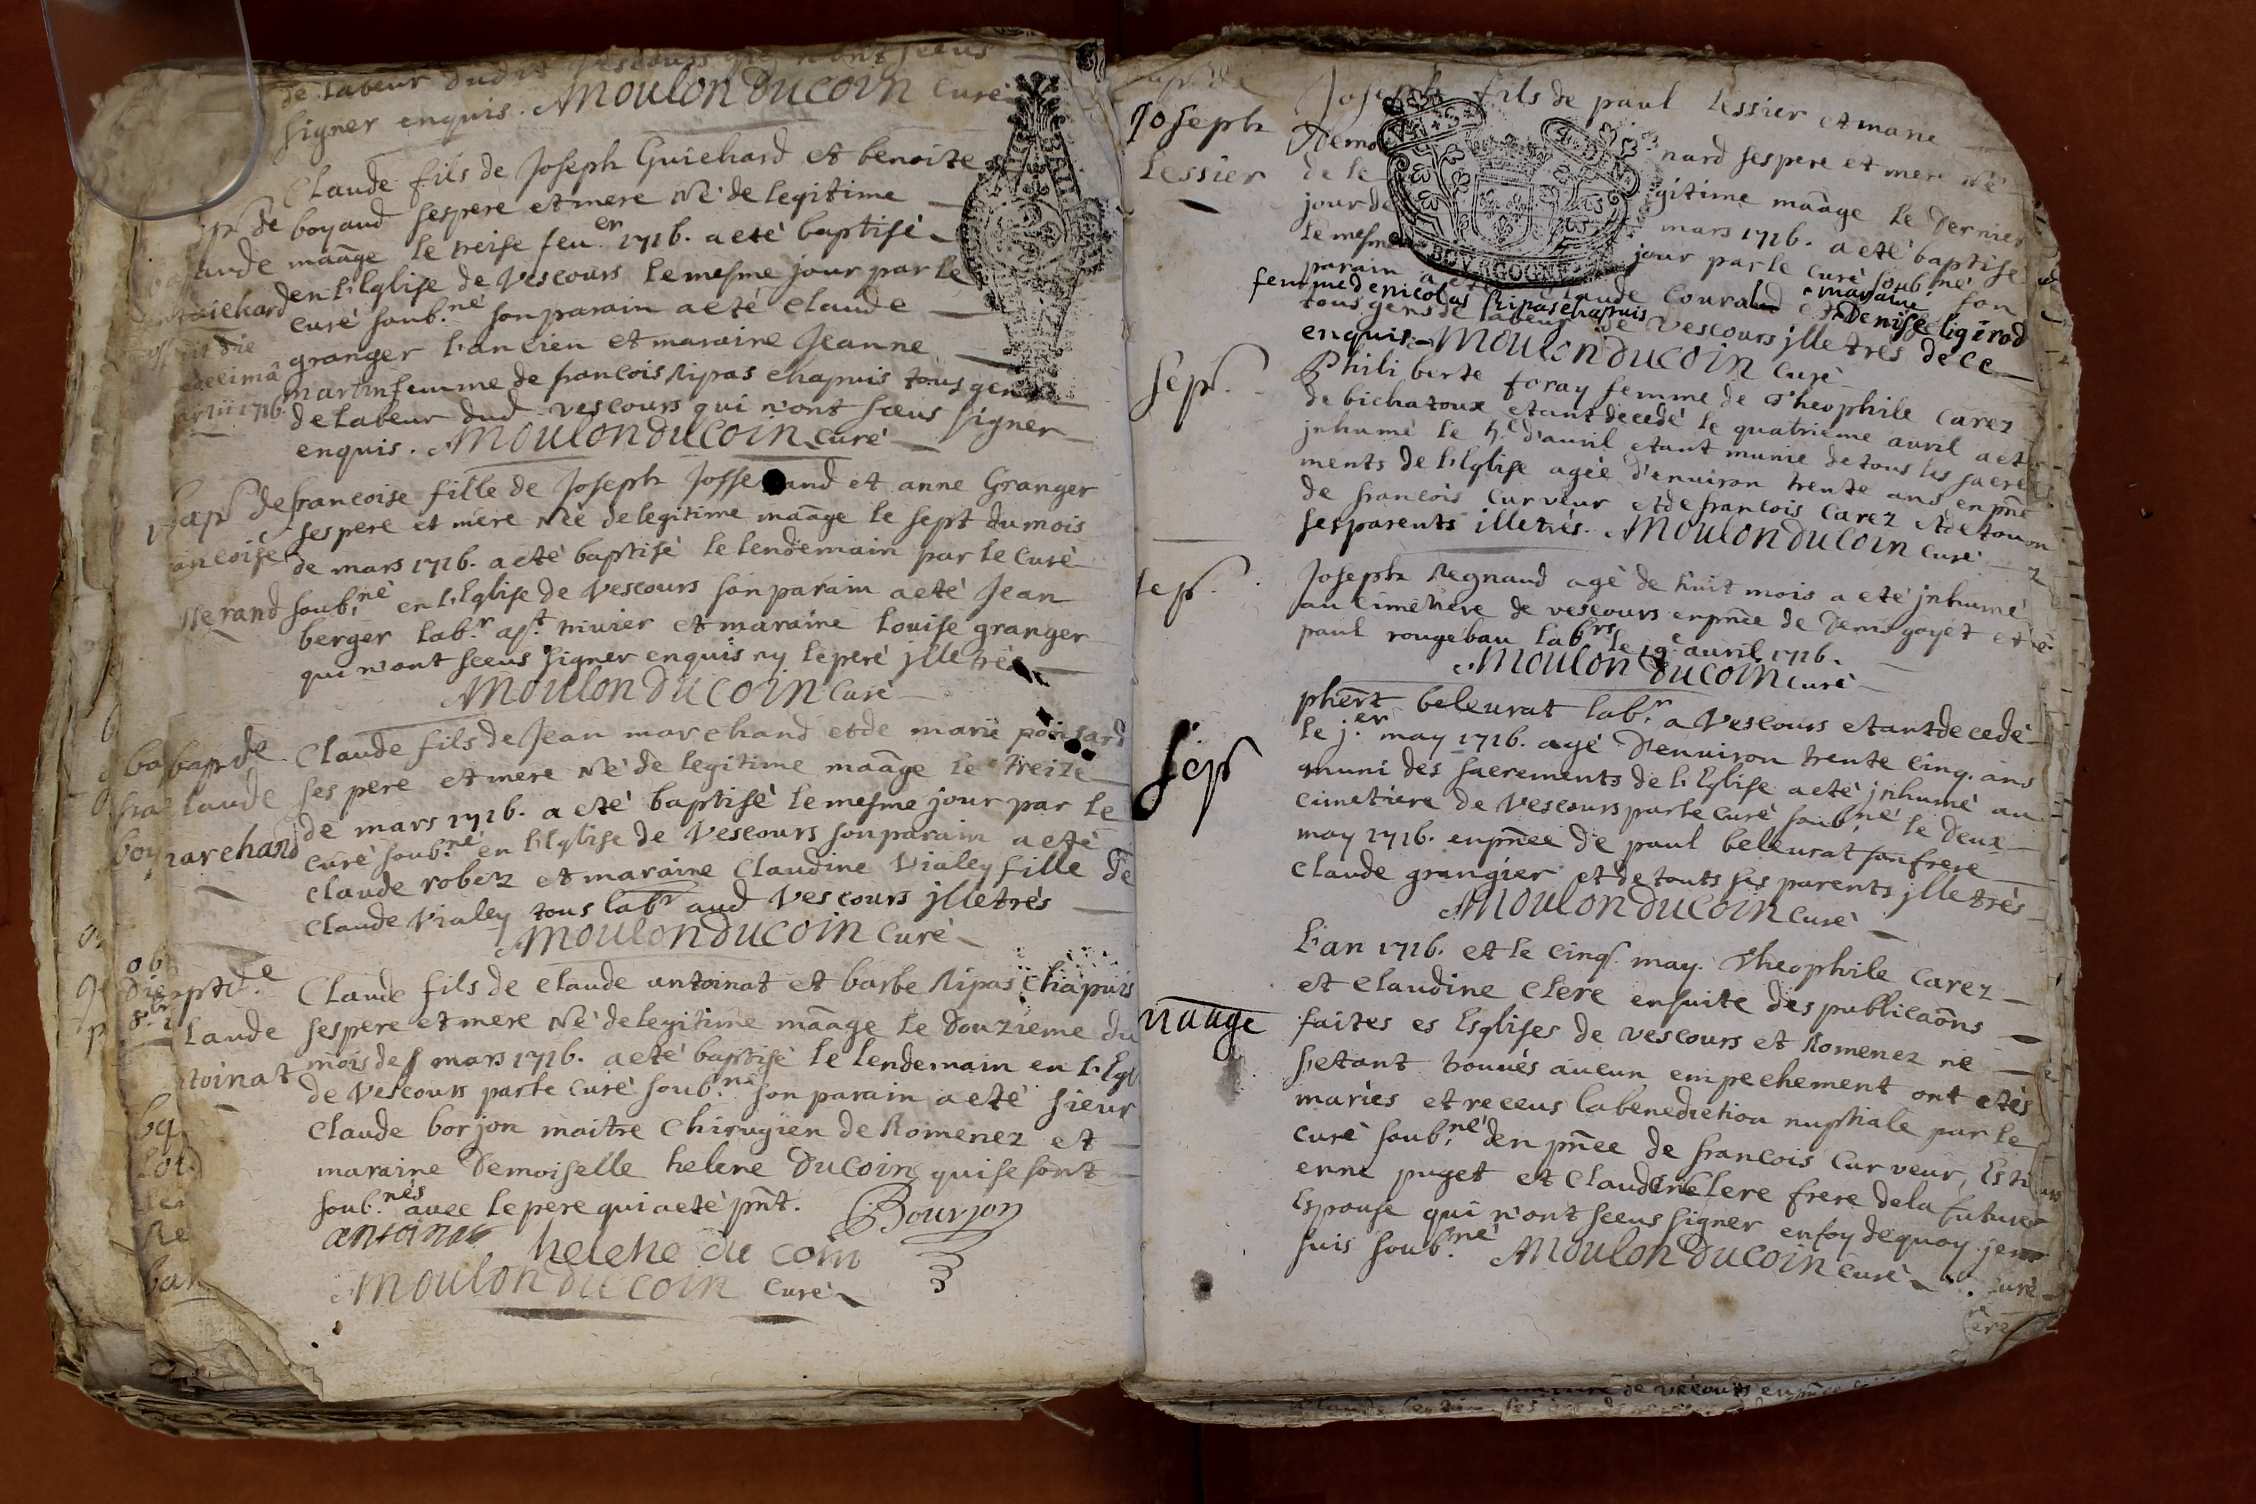 de labeur dudit Vescours qui n'ont sceus
signer enquis. Moulon Ducoin Curé
Claude fils de Joseph Guichard et benoite
bap de boyaud ses pere et mere Né de legitime
aude maage le treise feu.er 1716. a eté baptisé
uichard en l'Eglise de Vescours le mesme jour par le
curé soub.né son parain a eté claude
granger l'ancien et maraine Jeanne
decimâ martin femme de francois Ripas chapuis tous gens
martii 1716. de labeur dud. vescours qui n'ont sceus signer
enquis. Moulon Ducoin Curé
bap de francoise fille de Joseph Josse and et anne Granger
ses pere et mere Née de legitime maage le sept du mois
ancoise de mars 1716. a eté baptisé le lendemain par le Curé
sserand soub.né en l'Eglise de Vescours son parain a eté Jean
berger lab.r ap.t trivier et maraine louise granger
qui n'ont sceus signer enquis ny le peré jlletrés
Moulon Ducoin Curé
bap de Claude fils de Jean marchand et de marie poinsard
laude ses pere et mere Né de legitime maage le treize
de mars 1716. a eté baptisé le mesme jour par le
marchand curé soub.né en l'Eglise de Vescours son parain a eté
claude robez et maraine Claudine Vialey fille de
Claude Vialey tous labr aud Vescours jlletrés
Moulon Ducoin Curé
bapt de Claude fils de claude antoinat et barbe Ripas Chapuis
laude ses pere et mere Né de legitime maage le Douzieme du
mois de mars 1716. a eté baptisé le lendemain en l'Egl
toinat de Vescours par le curé soub.né son parain a eté sieur
Claude borjon maitre Chirugien de Romenez et
maraine Demoiselle helene Ducoin qui se sont
soub.nés avec le pere qui a eté pnt. Bourjon
antoinat helene du coin
Moulon Ducoin Curé
Joseph fils de paul Lessier et marie
Joseph Demo nard ses pere et mere Né
Lessier de le gitime maage le Dernier
jour de mars 1716. a eté baptisé
le mesme jour par le Curé soub.né son
parain a eté Claude Courand et maraine Denise ligérod
femme de nicolas Ripas chapuis
tous gens de labeur de Vescours jlletrés de ce
enquis Moulon Ducoin Curé
sep. Philiberte foray femme de Theophile Carez
de bichatoux etant decedé le quatrieme auril a et
jnhumé le 5.e d'auril etant munie de tous les sacre
ments de l'Eglise agée d'enuiron trente ans en pnce
de francois Curveur et de francois Carez et de tou
ses parents illetrés. Moulon Ducoin Curé
sep. Joseph Regnaud agé de huit mois a eté jnhumé
au Cimetiere de vescours en pnce de Denis goyet et de
paul rougebau labrs le 19.e auril 1716.
Moulon Ducoin Curé
phert beleurat lab.r a Vescours etant decedé
le j.er may 1716. agé D'enuiron trente Cinq. ans
sep muni des sacrements de l'Eglise a eté jnhumé au
cimetiere de Vescours par le Curé soub.né le deux
may 1716. en pnce de paul beleurat son frere
claude grangier et de touts ses parents jlletrés
Moulon Ducoin Curé
L'an 1716. et le Cinq. may. Theophile Carez
et Claudine Clere ensuite des publicaons
maage faites es Esglises de vescours et Romenez ne
s'etant trouués aucun empechement ont etés
mariés et receus la benediction nuptiale par le
curé soub.né en pnce de francois Curveur, Esti
enne puget et Claude Clere frere de la future
Espouse qui n'ont sceus signer en foy de quoy je me
suis soub.né Moulon Ducoin Curé